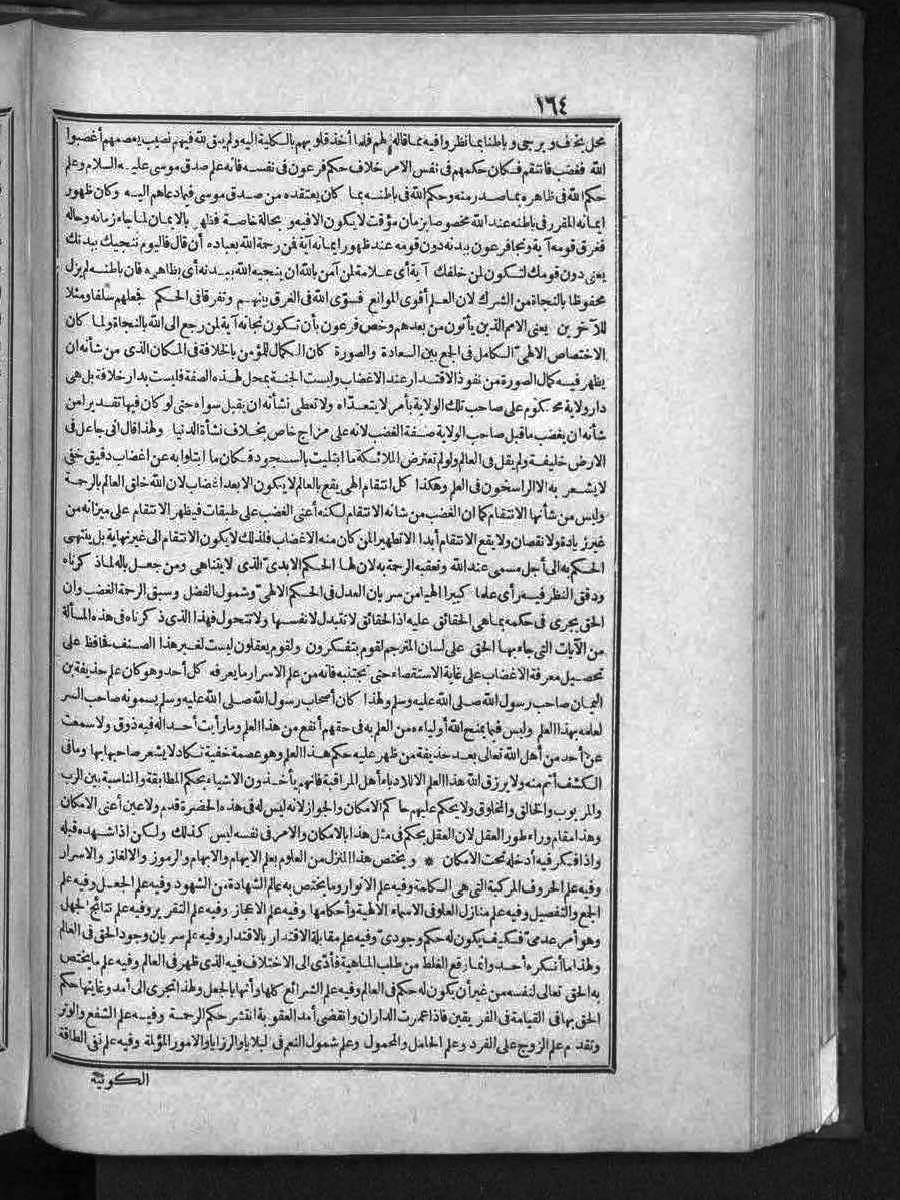 ١٦٤
محل يخاف ويرجى وباطنا بما نظروا فيه مما قاله لهم فلما أخذ قلوبهم بالكلية اليه ولم يبق لله فيهم نصيب يعصمهم أغضبوا
الله فغضب فانتقم فكان حكمهم فى نفس الامر خلاف حكم فرعون فى نفسه فانه علم صدق موسى عليه السلام وعلم
حكم الله فى ظاهره بما صدر منه وحكم الله فى باطنه بما كان يعتقده من صدق موسى فيما دعاهم اليه وكان ظهور
ايمانه المقرر فى باطنه عند الله مخصوصا بزمان مؤقت لا يكون الا فيه وبحالة خاصة فظهر بالايمان لما جاء زمانه وحاله
فغرق قومه آية ونجا فرعون ببدنه دون قومه عند ظهور ايمانه آية فمن رحمة الله بعباده أن قال فاليوم ننجيك ببدنك
يعنى دون قومك لتكون لمن خلفك آية أى علامة لمن آمن بالله ان ينجيه الله ببدنه أى بظاهره فان باطنه لم يزل
محفوظا بالنجاة من الشرك لان العلم أقوى الموانع فسوّى الله فى الغرق بينهم وتفرقا فى الحكم فجعلهم سلفا ومثلا
للآخرين يعنى الامم الذين يأتون من بعدهم وخص فرعون بأن تكون نجاته آية لمن رجع الى الله بالنجاة ولما كان
الاختصاص الالهىّ الكامل فى الجمع بين السعادة والصورة كان الكمال للمؤمن بالخلافة فى المكان الذى من شأنه ان
يظهر فيه كمال الصورة من نفوذ الاقتدار عند الاغضاب وليست الجنة بمحل لهذه الصفة فليست بدار خلافة بل هى
دار ولاية محكوم على صاحب تلك الولاية بأمر لا يتعدّاه ولا تعطى نشأته ان يقبل سواه حتى لو كان فيها تقديرا من
شأنه ان يغضب ما قبل صاحب الولاية صفة الغضب لانه على مزاج خاص بخلاف نشأة الدنيا ولهذا قال انى جاعل فى
الارض خليفة ولم يقل فى العالم ولو لم تعترض الملائكة ما ابتليت بالسجود فكان ما ابتلوا به عن اغضاب دقيق خفى
لا يشعر به الا الراسخون فى العلم وهكذا كل انتقام الهى يقع بالعالم لا يكون الا بعد اغضاب لان الله خلق العالم بالرحمة
وليس من شأنها الانتقام كما ان الغضب من شانه الانتقام لكنه أعنى الغضب على طبقات فيظهر الانتقام على ميزانه من
غير زيادة ولا نقصان ولا يقع الانتقام أبدا الا تطهيرا لمن كان منه الاغضاب فلذلك لا يكون الانتقام الى غير نهاية بل ينتهى
الحكم به الى أجل مسمى عند الله وتعقبه الرحمة به لان لها الحكم الابدىّ الذى لا يتناهى ومن جعل باله لما ذكرناه
ودقق النظر فيه رأى علما كبيرا الهيا من سريان العدل فى الحكم الالهىّ وشمول الفضل وسبق الرحمة الغضب وان
الحق يجرى فى حكمه بما هى الحقائق عليه اذ الحقائق لا تتبدل لانفسها ولا تتحول فهذا الذى ذكرناه فى هذه المسألة
من الآيات التى جاء بها الحق على لسان المترجم لقوم يتفكرون ولقوم يعقلون ليست لغير هذا الصنف فحافظ على
تحصيل معرفة الاغضاب على غاية الاستقصاء حتى تجتنبه فانه من علم الاسرار ما يعرفه كل أحد وهو كان علم حذيفة بن
اليمان صاحب رسول الله صلى الله عليه وسلم ولهذا كان أصحاب رسول الله صلى الله عليه وسلم يسمونه صاحب السر
لعلمه بهذا العلم وليس فيما يمنح الله أولياءه من العلم به فى حقهم أنفع من هذا العلم وما رأيت أحدا له فيه ذوق ولا سمعت
عن أحد من أهل الله تعالى بعد حذيفة من ظهر عليه حكم هذا العلم وهو عصمة خفية تكاد لا يشعر صاحبها بها وما فى
الكشف أتم منه ولا يرزق الله هذا العلم الا للادباء أهل المراقبة فانهم يأخذون الاشياء بحكم المطابقة والمناسبة بين الرب
والمربوب والخالق والمخلوق ولا يحكم عليهم حاكم الامكان والجواز لانه ليس له فى هذه الحضرة قدم ولا عين أعنى الامكان
وهذا مقام وراء طور العقل لان العقل يحكم فى مثل هذا بالامكان والامر فى نفسه ليس كذلك ولكن اذا شهده قبله
واذا فكر فيه أدخله تحت الامكان * ويختص هذا المنزل من العلوم بعلم الابهام والايهام والرموز والالغاز والاسرار
وفيه علم الحروف المركبة التى هى الكلمة وفيه علم الانوار وما يختص به عالم الشهادة من الشهود وفيه علم الجعل وفيه علم
الجمع والتفصيل وفيه علم منازل العلو فى الاسماء الالهية وأحكامها وفيه علم الاعجاز وفيه علم التقرير وفيه علم نتائج الجهل
وهو أمر عدمىّ فكيف يكون له حكم وجودىّ وفيه علم مقابلة الاقتدار بالاقتدار وفيه علم سريان وجود الحق فى العالم
ولهذا ما أنكره أحد وانما وقع الغلط من طلب الماهية فأدّى الى الاختلاف فيه الذى ظهر فى العالم وفيه علم ما يختص
به الحق تعالى لنفسه من غير أن يكون له حكم فى العالم وفيه علم الشرائع كلها وأنها بالجعل ولهذا تجرى الى أمد وغايتها حكم
الحق بها فى القيامة فى الفريقين فاذا عمرت الداران وانقضى أمد العقوبة انتشر حكم الرحمة وفيه علم الشفع والوتر
وتقدم علم الزوج على الفرد وعلم الحامل والمحمول وعلم شمول النعم فى البلايا والرزايا والامور المؤلمة وفيه علم نفى الطاقة
الكونية